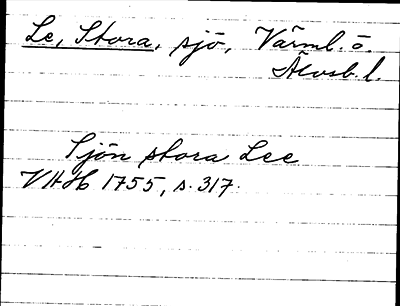 Le, Stora, sjö, Värml. o.
Älvsb. l.
Sjön stora Lee
VHH 1755, s. 317.